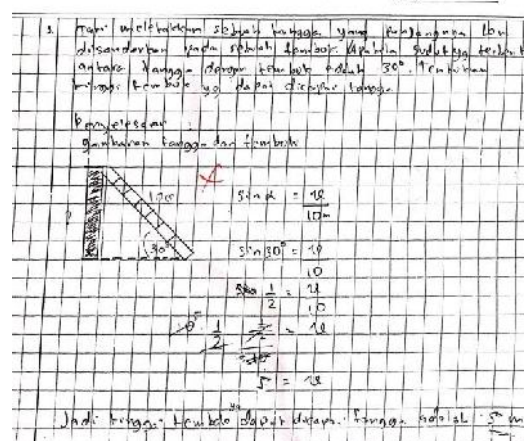 1. Tami meletakkan sebuah tangga yang panjangnya 10m
disandarkan pada sebuah tembok. Apabila sudut yg terbent
antara tangga dengan tembok adalah 30°. Tentukan
tinggi tembok yg dapat dicapai tangga.
Penyelesaian :
gambaran tangga dan tembok
? 10m 30°
sin α = y / 10m
sin 30° = y / 10
1/2 = y / 10
1/2 = y
5 = y
Jadi tinggi tembok yg dapat dicapai tangga adalah 5 m